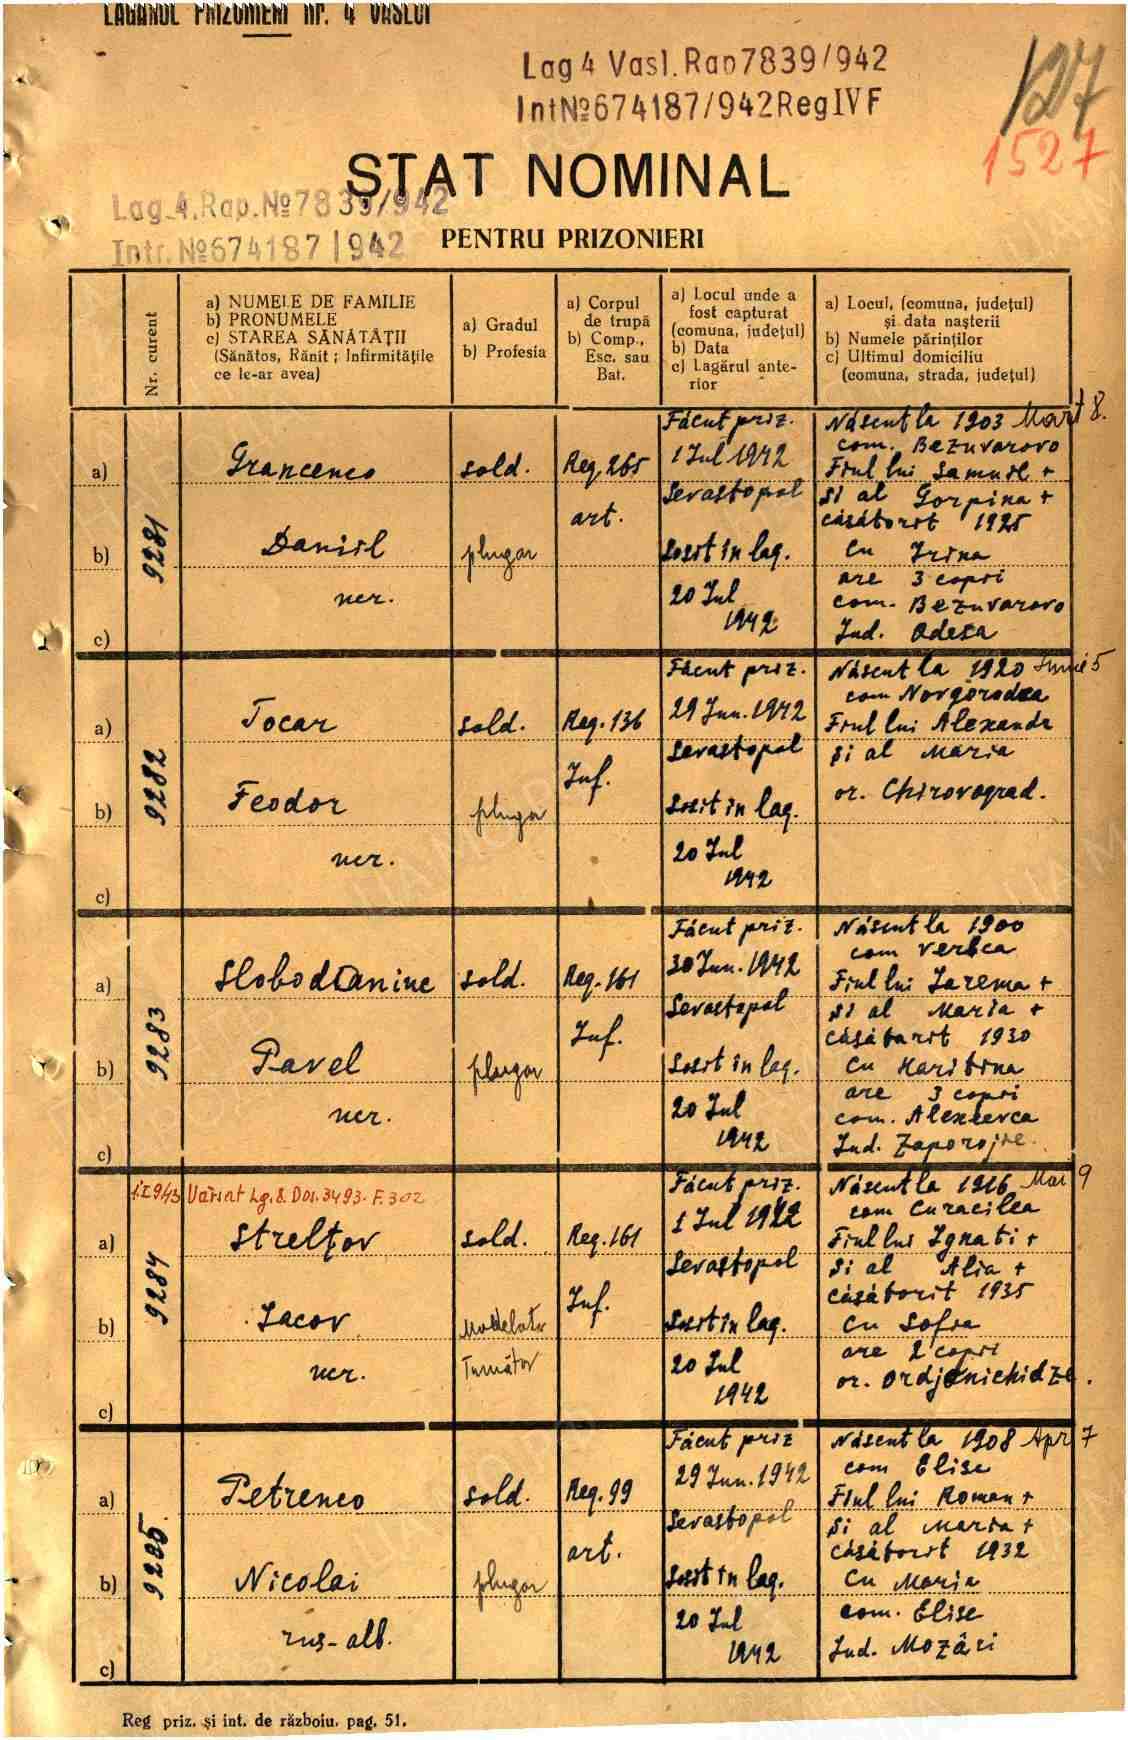 LAGĂRUL PRIZONIERI Nr. 4 VASLUI
Lag 4 Vasl. Rap 7839/942
Int № 674187/942 Reg IV F
127
1527
STAT NOMINAL
Lag. 4. Rap. № 7839/942
Intr. № 674187/942
PENTRU PRIZONIERI
Nr. curent
a) NUMELE DE FAMILIE
b) PRONUMELE
c) STAREA SĂNĂTĂȚII
(Sănătos, Rănit ; Infirmitățile
ce le-ar avea)
a) Gradul
b) Profesia
a) Corpul
de trupă
b) Comp.,
Esc. sau
Bat.
a) Locul unde a
fost capturat
(comuna, județul)
b) Data
c) Lagărul ante-
rior
a) Locul, (comuna, județul)
și data nașterii
b) Numele părinților
c) Ultimul domiciliu
(comuna, strada, județul)
a)
b)
c)
9281
Grancenco
Daniil
ucr.
sold.
plugar
Reg. 265
art.
Făcut priz.
1 Iul 1942
Sevastopol
Sosit în lag.
20 Iul
1942
Născut la 1903 Mart 8.
com. Bezuvarovo
Fiul lui Samuil +
Si al Gorpina +
căsătorit 1925
cu Irina
are 3 copri
com. Bezuvarovo
Jud. Odesa
a)
b)
c)
9282
Tocar
Feodor
ucr.
sold.
plugar
Reg. 136
Inf.
Făcut priz.
29 Iun. 1942
Sevastopol
Sosit în lag.
20 Iul
1942
Născut la 1920 Iunie 5
com Novgorodca
Fiul lui Alexandr
si al Maria
or. Chirovograd.
a)
b)
c)
9283
Slobodianiuc
Pavel
ucr.
sold.
plugar
Reg. 161
Inf.
Făcut priz.
30 Iun. 1942
Sevastopol
Sosit în lag.
20 Iul
1942
Născut la 1900
com Verbca
Fiul lui Iarema +
Si al Maria +
căsătorit 1930
cu Haritina
are 3 copri
com. Alexeevca
Jud. Zaporojie.
1.I.943 Vărsat Lg. 8. Dos. 3493. F. 302
a)
b)
c)
9284
Strelțov
Iacov
ucr.
sold.
Modelator
Turnător
Reg. 161
Inf.
Făcut priz.
1 Iul 1942
Sevastopol
Sosit în lag.
20 Iul
1942
Născut la 1916 Mai 9
com Curacilca
Fiul lui Ignati +
Si al Alia +
căsătorit 1935
cu Sofia
are 2 copri
or. Ordjonichidze.
a)
b)
c)
9285
Petrenco
Nicolai
rus-alb.
sold.
plugar
Reg. 99
art.
Făcut priz
29 Iun. 1942
Sevastopol
Sosit în lag.
20 Iul
1942
Născut la 1908 Apr 7
com Elisc
Fiul lui Roman +
Si al Maria +
căsătorit 1932
cu Maria
com. Elisc
Jud. Mozâri
Reg priz. și int. de războiu. pag. 51.